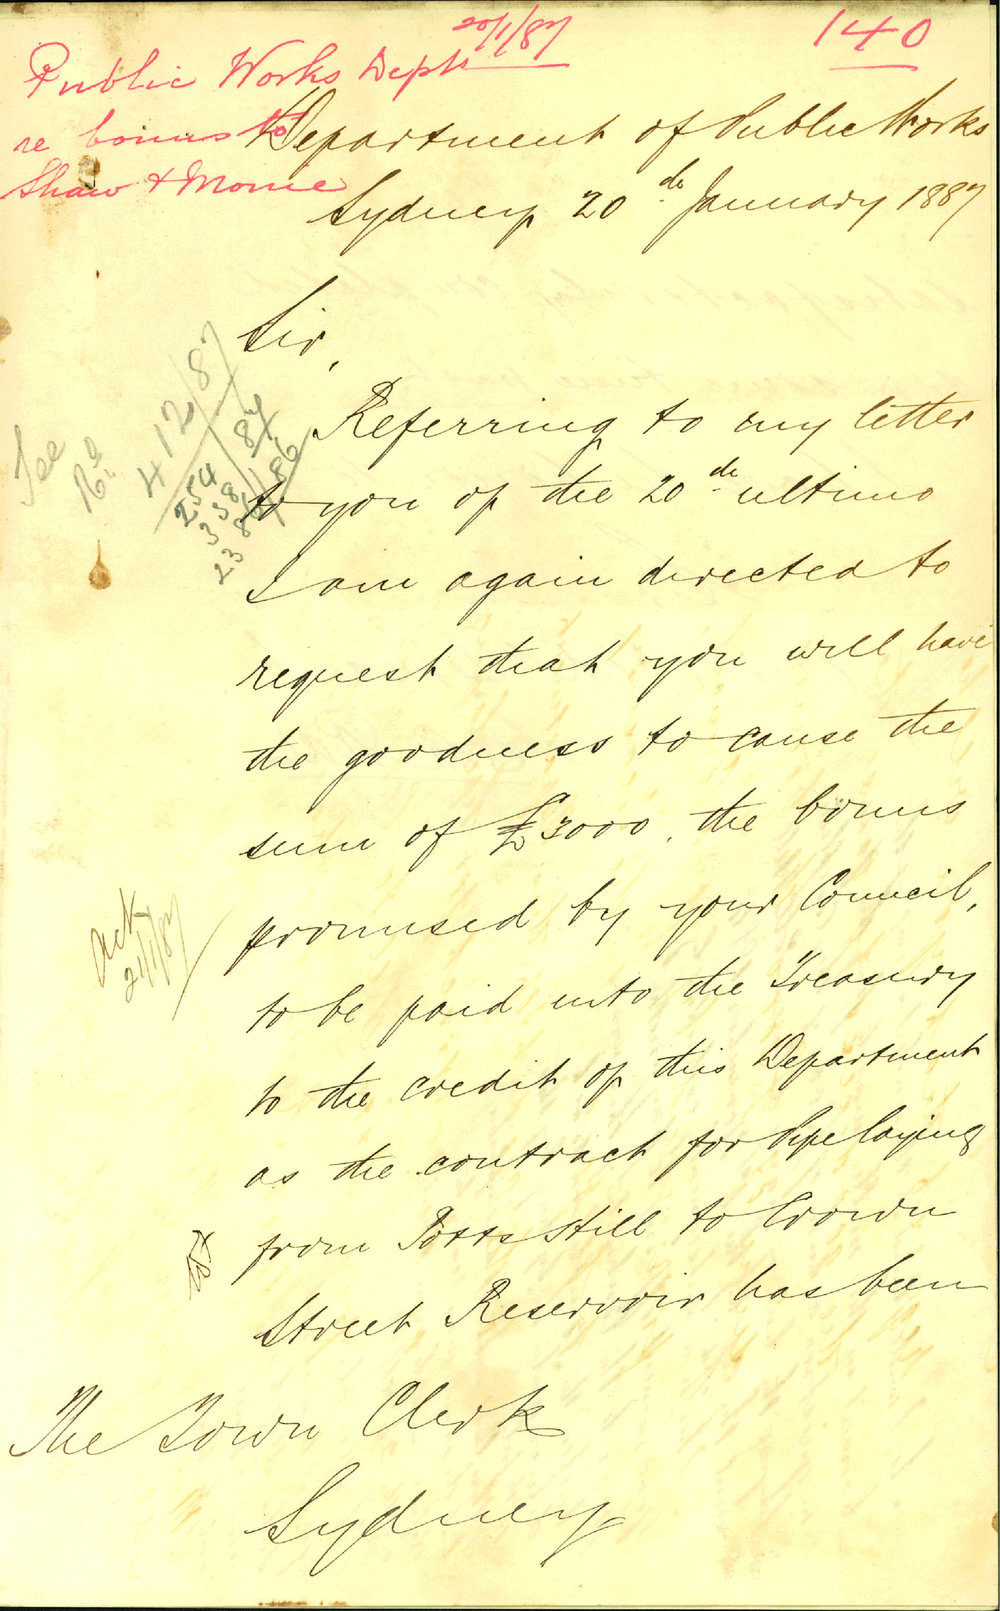 20/1/87
140
Public Works Dept
re bonus to
Shaw & Morrie
Department of Public Works
Sydney 20th January 1887
Sir,
See
No.
412/87
254/87
338/
23 86/86
Referring to my letter
to you of the 20th ultimo
I am again directed to
request that you will have
the goodness to cause the
sum of £3000, the bonus
promised by your Council,
to be paid into the Treasury
to the credit of this Department
as the contract for Pipe laying
from Potts Hill to Crown
Street Reservoir has been
Ack
21/1/87
The Town Clerk
Sydney